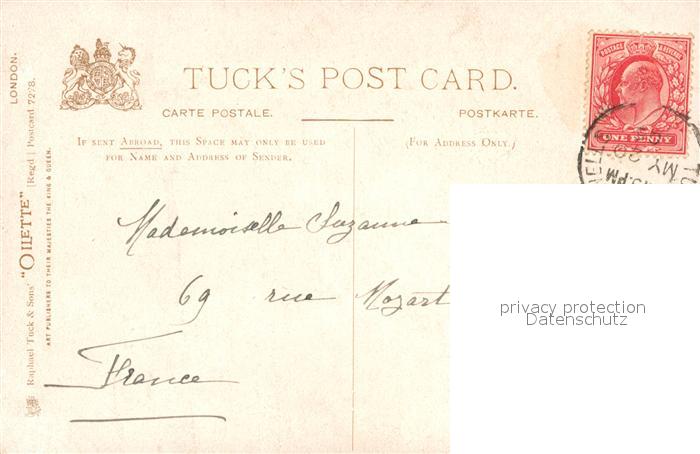 LONDON.
TUCK'S POST CARD.
CARTE POSTALE. POSTKARTE.
IF SENT ABROAD, THIS SPACE MAY ONLY BE USED
FOR NAME AND ADDRESS OF SENDER.
(FOR ADDRESS ONLY.)
POSTAGE & REVENUE
ONE PENNY
PM
MY 20
Mademoiselle Suzanne
69 rue Mozart
France
Raphael Tuck & Sons' "OILETTE" [Regd.] Postcard 7228.
ART PUBLISHERS TO THEIR MAJESTIES THE KING & QUEEN.
privacy protection
Datenschutz